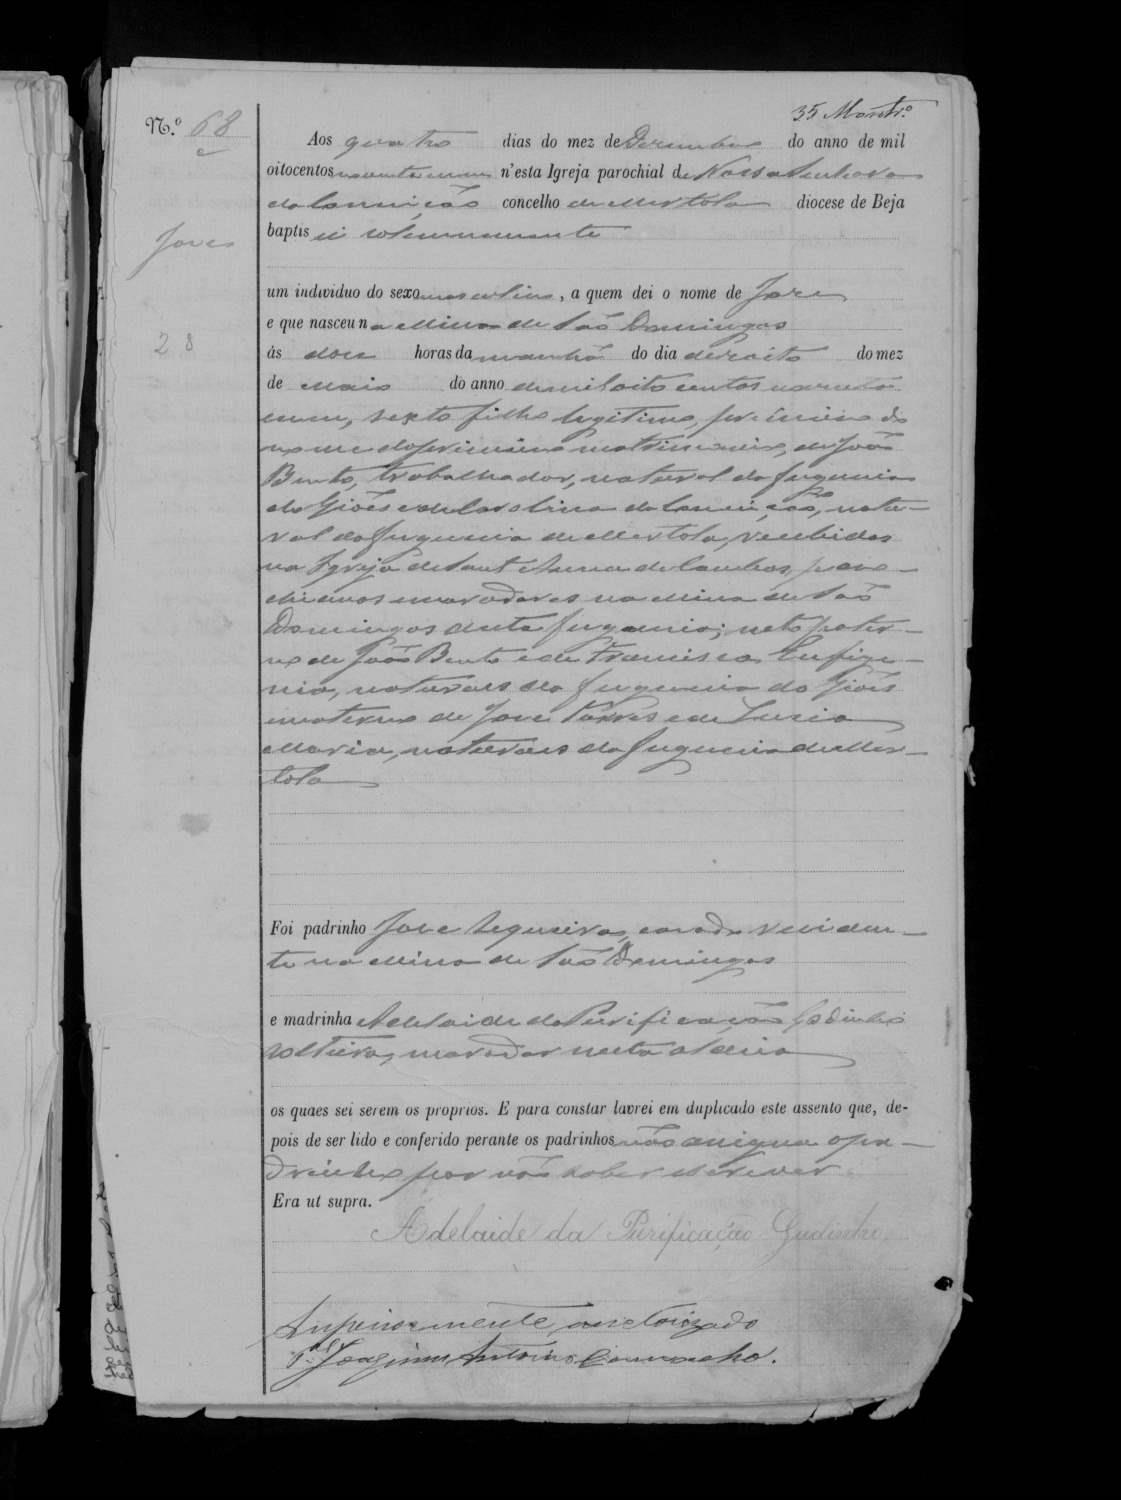 35
N.º 68
Aos quatro dias do mez de Dezembro do anno de mil
oitocentos noventa e um n'esta Igreja parochial de Nossa Senhora
da Conceição concelho de Mertola diocese de Beja
baptisei solemnemente
José
um individuo do sexo masculino, a quem dei o nome de José
e que nasceu na Mina de São Domingos
28
ás doze horas da manhã do dia dezoito do mez
de Maio do anno de mil oito centos noventa e
um, sexto filho legitimo, primeiro do
nome do primeiro matrimonio, de João
Bento, trabalhador, natural da freguesia
do Giões e de Carolina da Conceição, natu-
ral da freguesia de Mertola, recebidos
na Igreja de Sant Anna de Cambas, paro-
chianos moradores na Mina de São
Domingos desta freguesia; neto pater-
no de João Bento e de Francisca Eufige-
nia, naturaes da freguesia do Giões
materno de José Torres e de Luzia
Maria, naturaes da freguesia de Mer-
tola
Foi padrinho José Sequeira, casado residen-
te na Mina de São Domingos
e madrinha Adelaide da Purificação Godinho
solteira, morador nesta aldeia
os quaes sei serem os proprios. E para constar lavrei em duplicado este assento que, de-
pois de ser lido e conferido perante os padrinhos não assigna o pa-
drinho por não saber escrever
Era ut supra.
Adelaide da Purificação Gudinho
Superiormente auctorizado
P.e Joaquim Antonio Camacho.